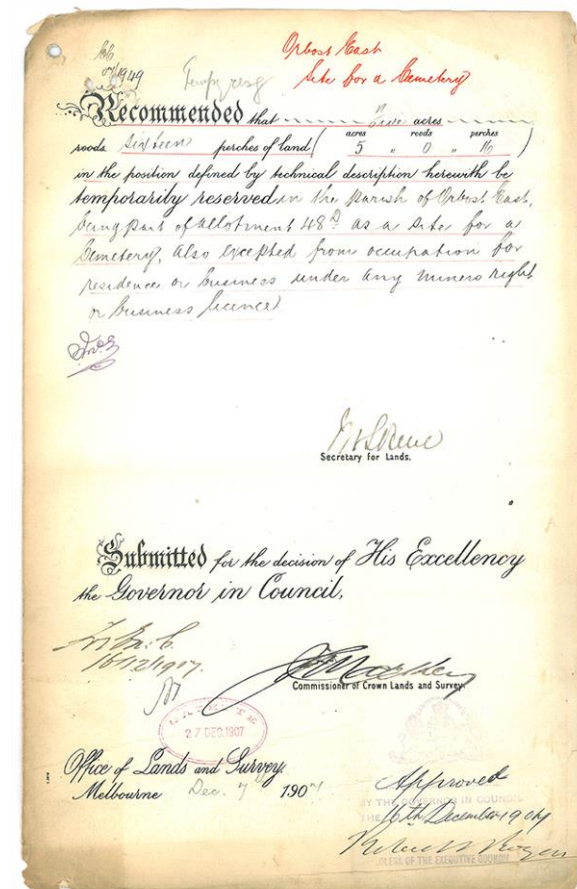 Orbost East
Site for a Cemetery
1949
Tempy resg
Recommended that five acres
roods sixteen perches of land ( acres 5 " roods 0 " perches 16 )
in the position defined by technical description herewith be
temporarily reserved in the Parish of Orbost East,
being part of allotment 48D as a site for a
Cemetery, also excepted from occupation for
residence or business under any miners right
or business licence
Secretary for Lands.
Submitted for the decision of His Excellency
the Governor in Council,
16/12/1907.
Commissioner of Crown Lands and Survey.
27 DEC.1907
Office of Lands and Survey.
Melbourne Dec. 7 1907
Approved
BY THE GOVERNOR IN COUNCIL
THE 16th December 1907
CLERK OF THE EXECUTIVE COUNCIL